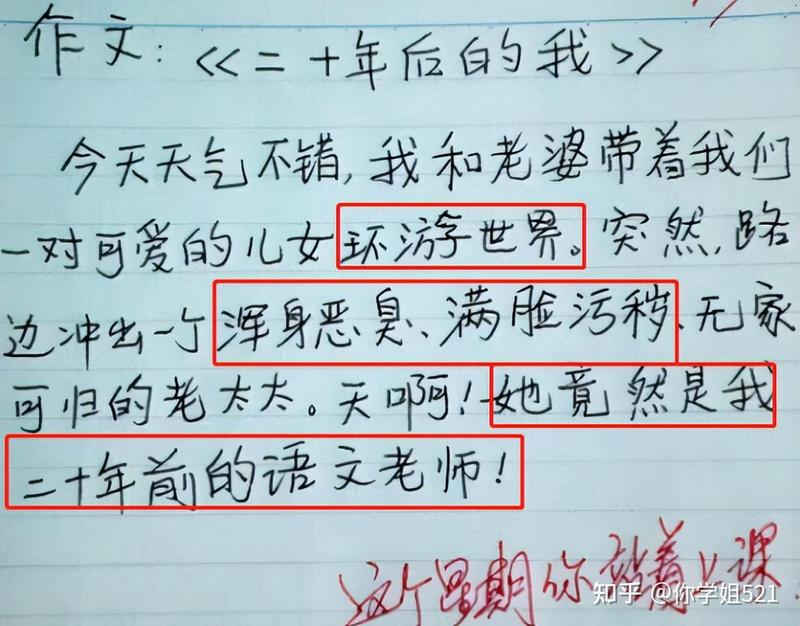 作文：<<二十年后的我>>
今天天气不错,我和老婆带着我们
一对可爱的儿女环游世界。突然,路
边冲出一个浑身恶臭、满脸污秽、无家
可归的老太太。天啊!她竟然是我
二十年前的语文老师!
这个星期你站着上课
知乎 @你学姐521